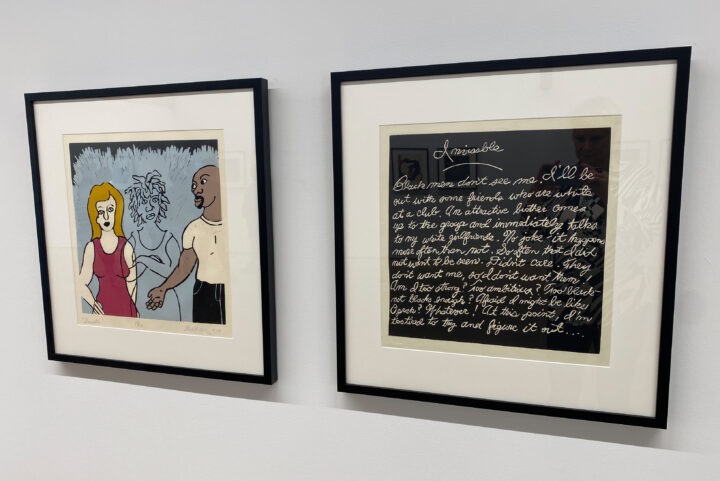 Invisable
Black men don't see me, I'll be
out with some friends who are white
at a club. An attractive brother comes
up to the group and immediately talks
to my white girlfriends. No joke it happens
more often than not. So often that I did
not want to be seen. Didn't care. They
don't want me, so I don't want them!
Am I too strong? Too ambitious? Too black
not black enough? Afraid I might be like
Oprah? Whatever! At this point, I'm
too tired to try and figure it out....